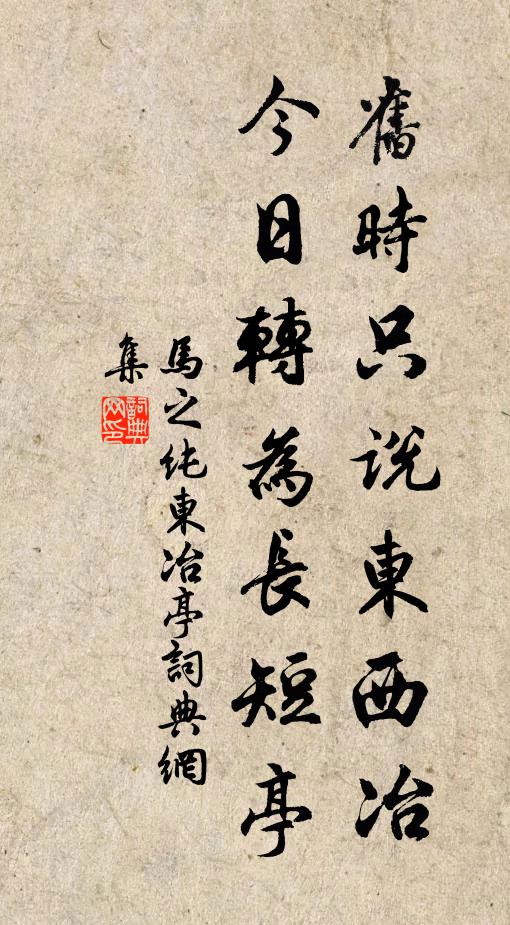 舊時只說東西冶
今日轉為長短亭
馬之純東冶亭詞典網
集
詞典网印